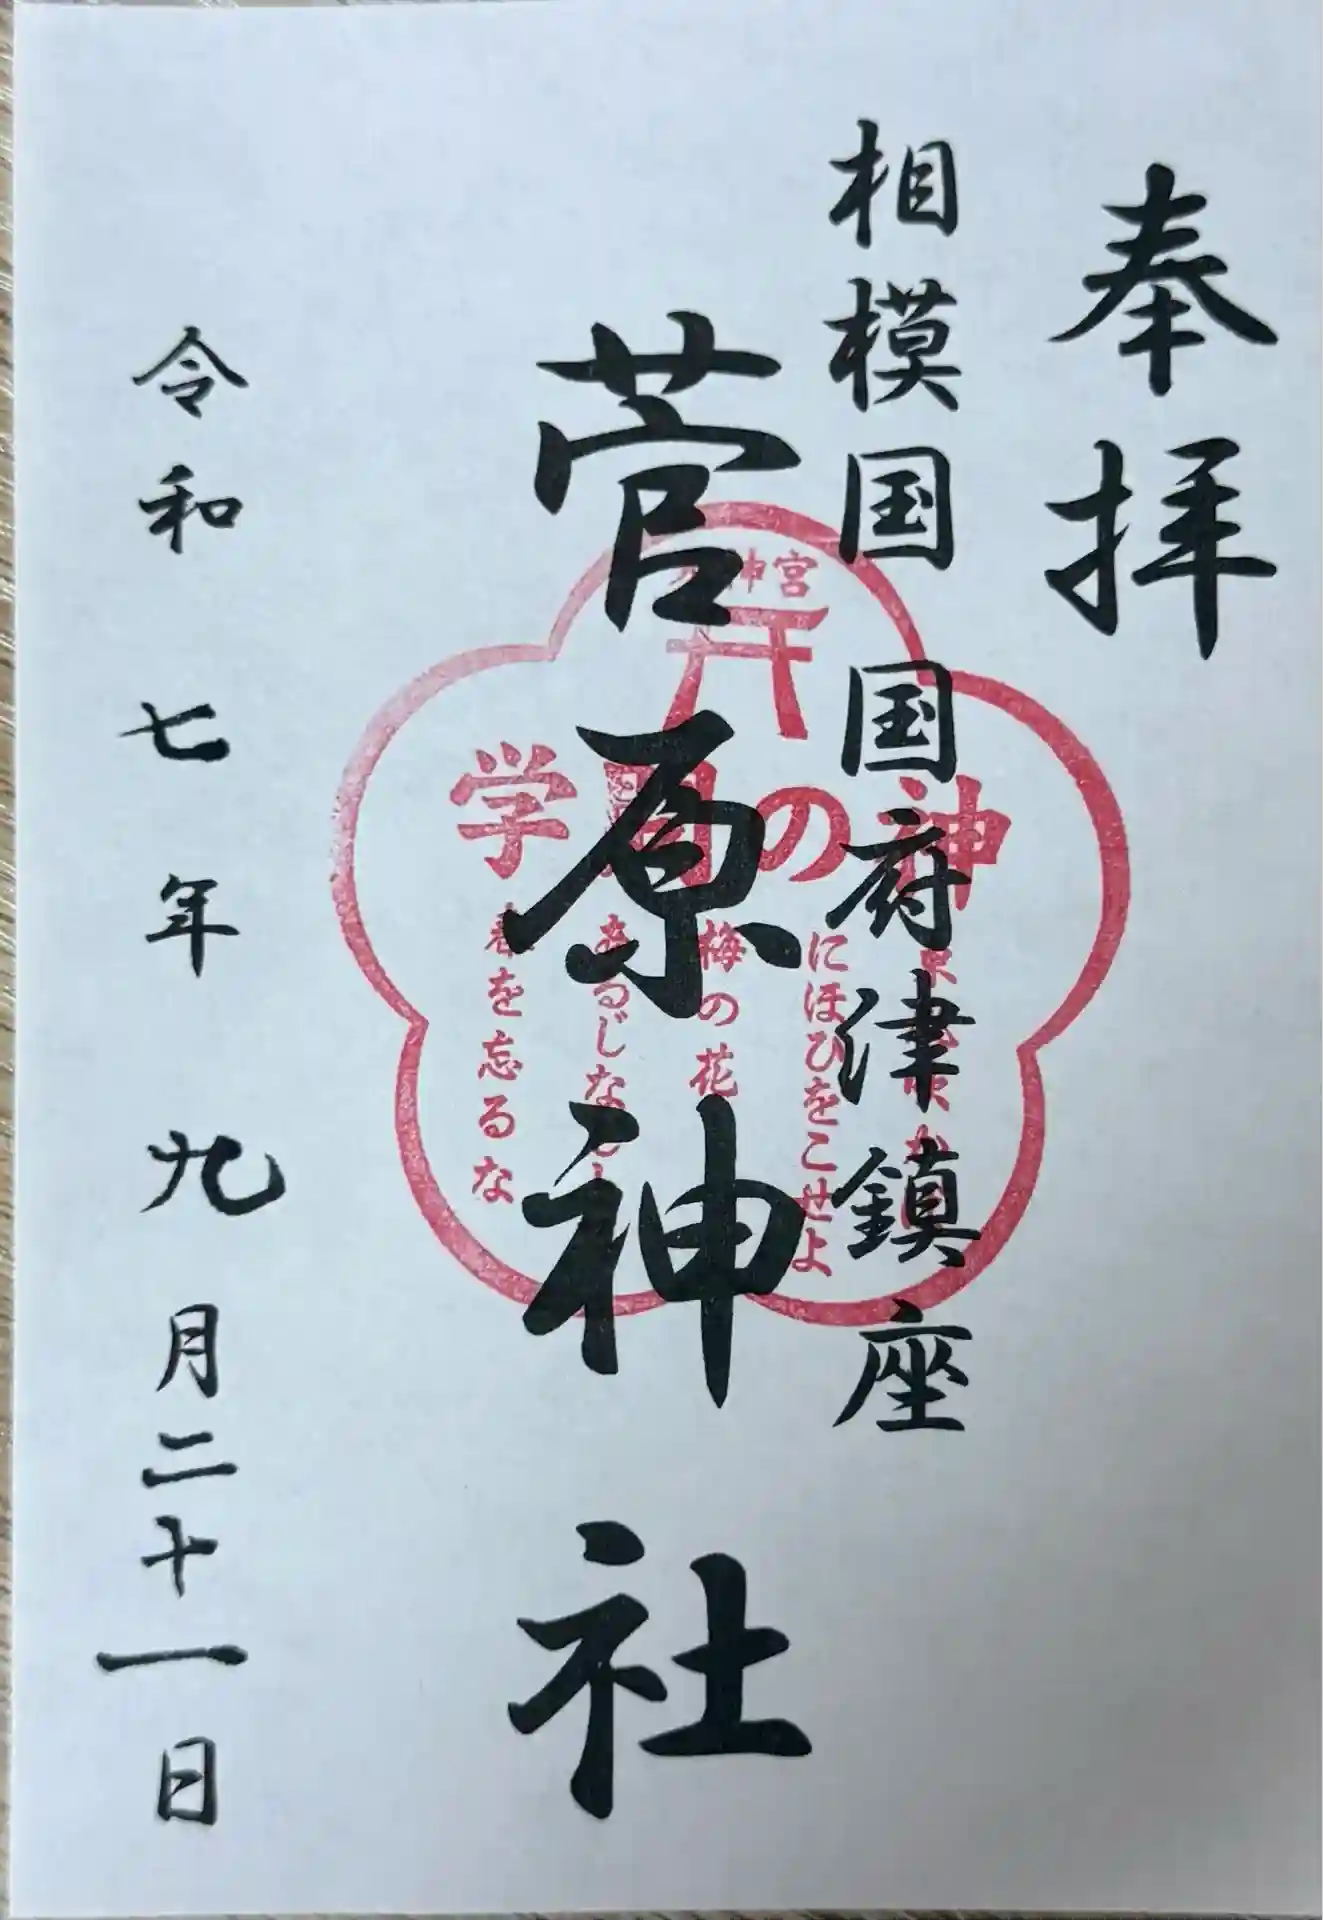 奉拝
相模国 国府津鎮座
菅原神社
令和 七 年 九 月二十一日
神宮
学問の神
にほひをこせよ
梅の花
春を忘るな